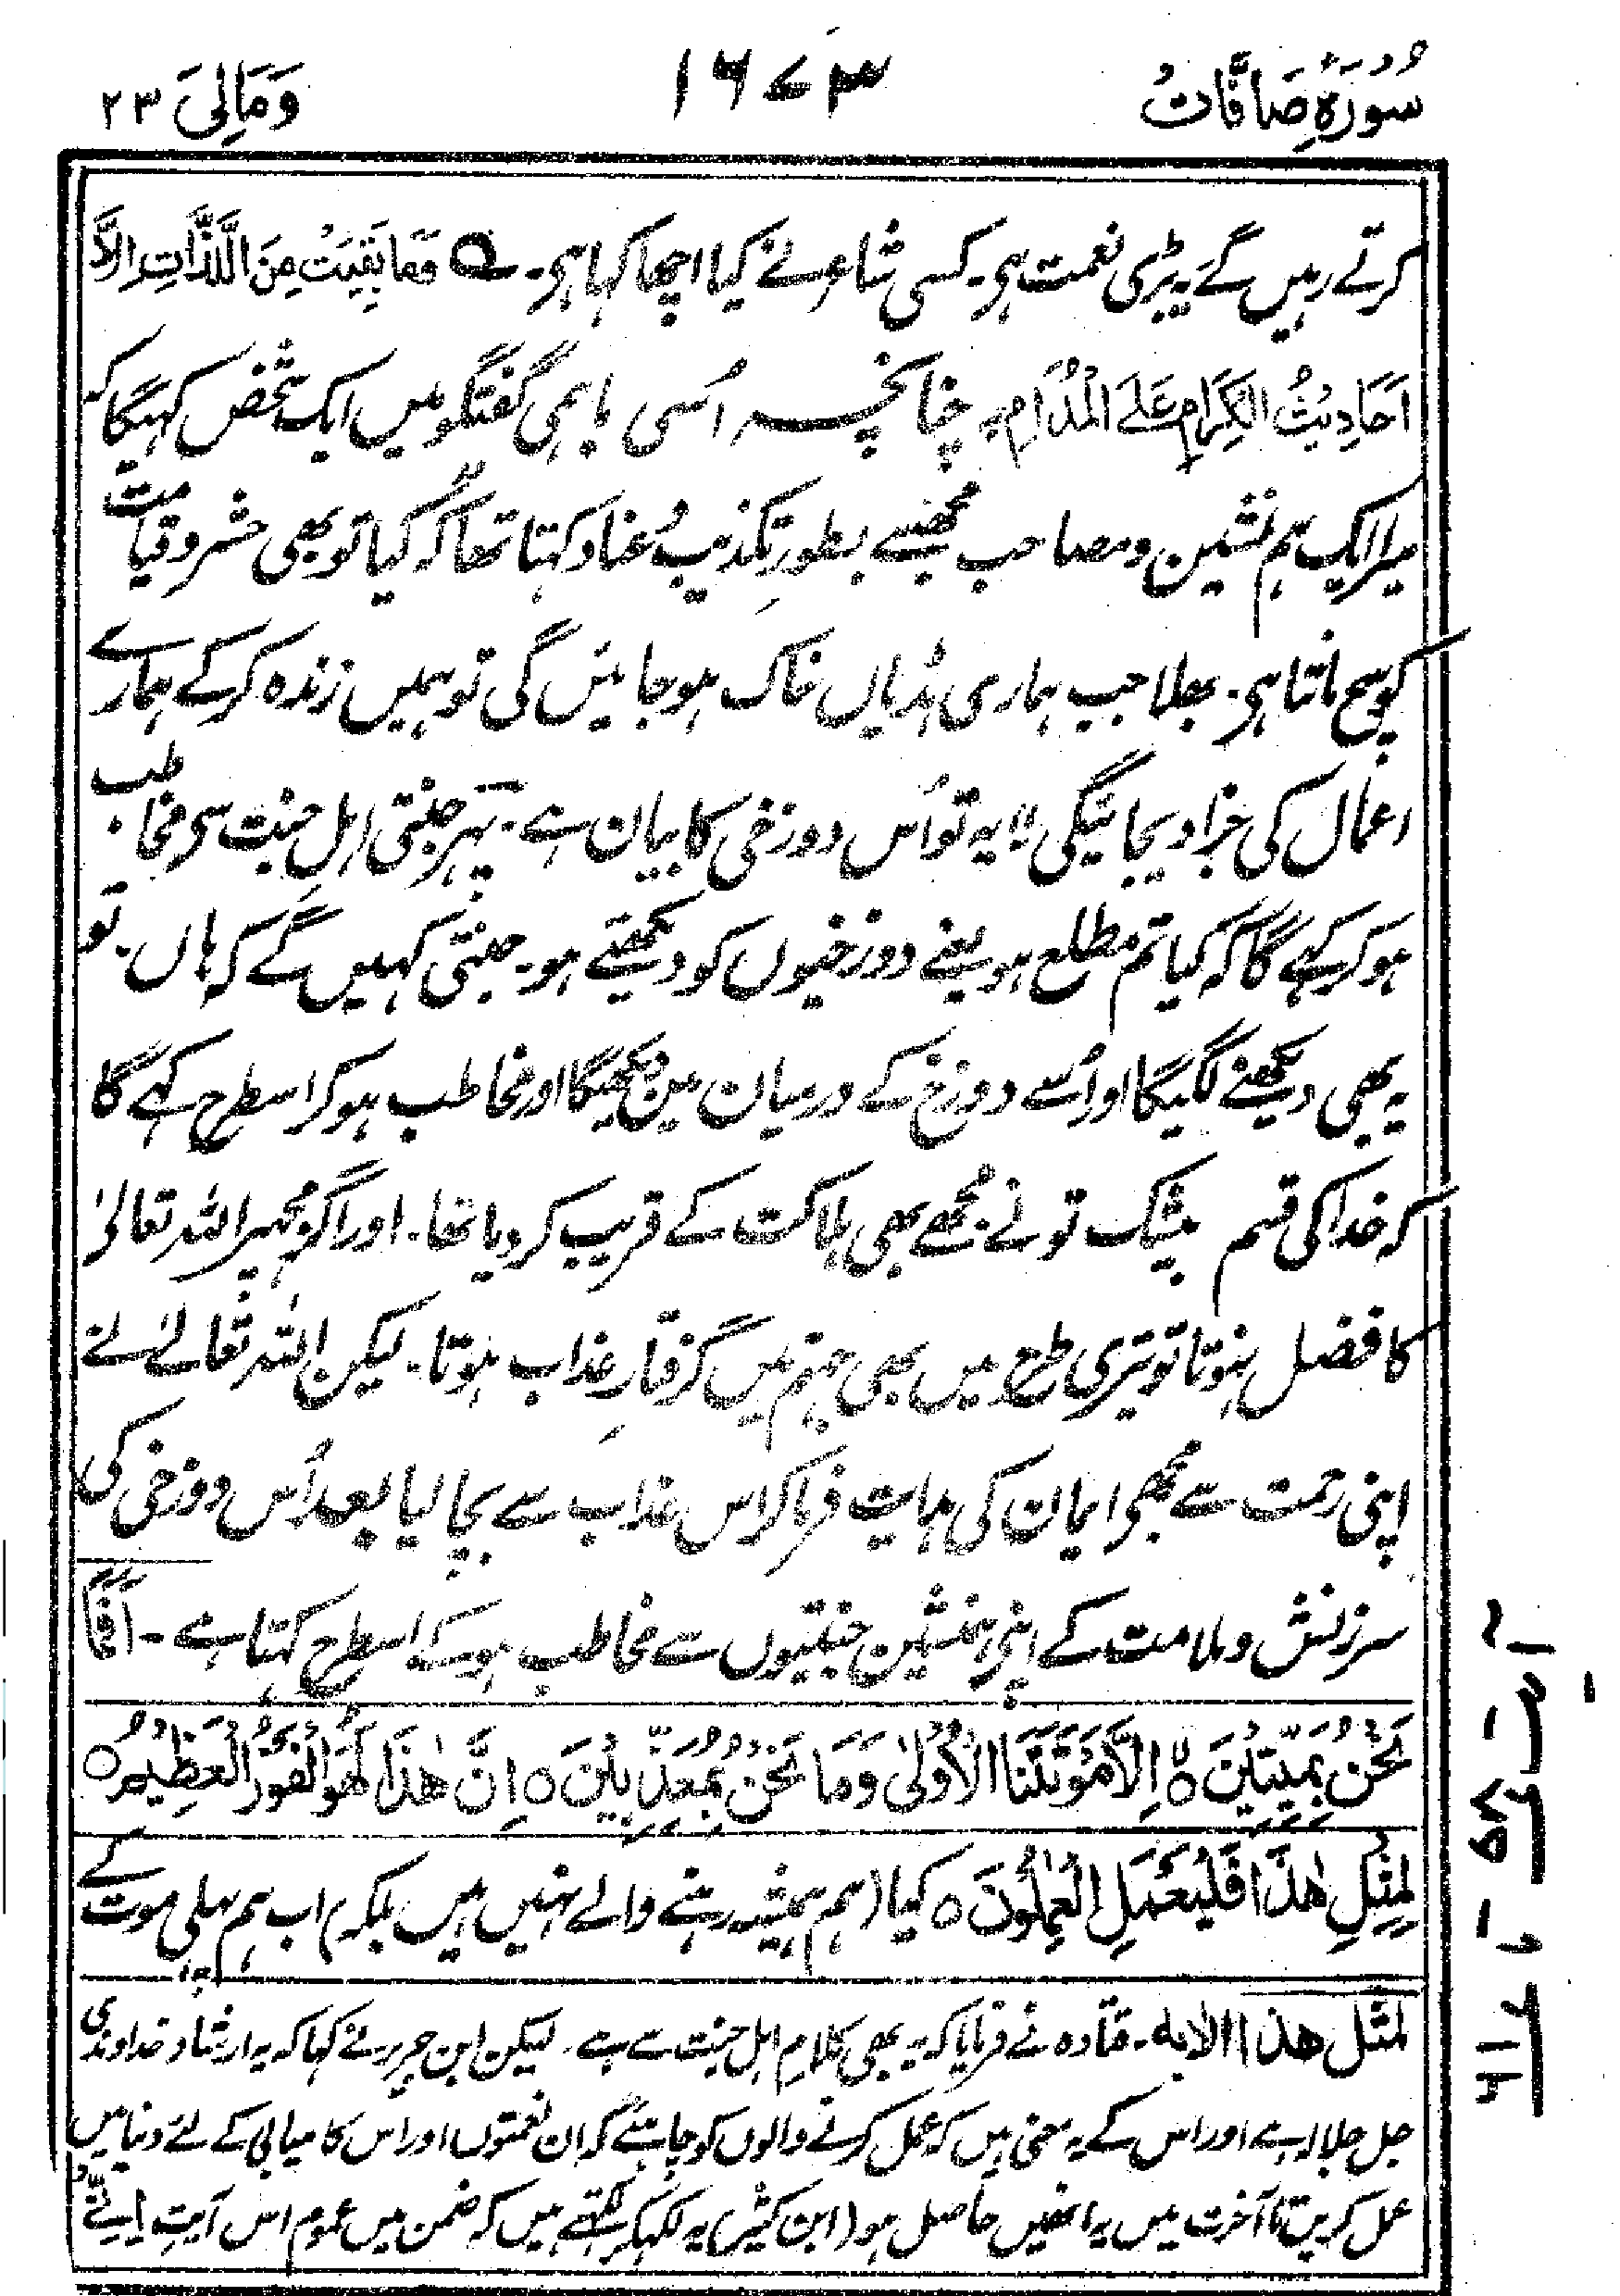 سُورَۃِ صَافَّات ۱۶۷۳ وَمَالِیَ ۲۳
کرتے رہیں گے۔ یہ بڑی نعمت ہی۔ کسی شاعر نے کیا اچھا کہا ہی۔ فَمَا بَقِیَتْ مِنَ اللَّذَّاتِ اِلَّا
اَحَادِیْثُ الْکِرَامِ عَلَے الْمُدَامِ۔ چنانچہ اُسی باہمی گفتگو میں ایک شخص کہیگا کہ
میرا ایک ہم نشین و مصاحب مجھسے بطور تکذیب و عناد کہتا تھا کہ کیا تو بھی حشر و قیامت
کو سچ مانتا ہی۔ بھلا جب ہماری ہڈیاں خاک ہوجائیں گی تو ہمیں زندہ کرکے ہمارے
اعمال کی جزا دیجائیگی" یہ تو اُس دوزخی کا بیان ہے۔ پھر جنتی اہل جنت سی مخاطب
ہو کر کہے گا کہ کیا تم مطلع ہو یعنے دوزخیوں کو دیکھتے ہو۔ جنتی کہیں گے کہ ہاں۔ تو
یہ بھی دیکھنے لگیگا اور اُسے دوزخ کے درمیان میں دیکھیگا اور مخاطب ہو کر اسطرح کہے گا
کہ خدا کی قسم بیشک تو نے مجھے بھی ہلاکت کے قریب کر دیا تھا۔ اور اگر مجھپر اللہ تعالیٰ
کا فضل نہوتا تو تیری طرح میں بھی جہنم میں گرفتارِ عذاب ہوتا۔ لیکن اللہ تعالےٰ نے
اپنی رحمت سے مجھی ایمان کی ہدایت فرما کر اس عذاب سے بچا لیا بعد اُس دوزخی کی
سرزنش و ملامت کے اپنی ہمنشین جنتیوں سے مخاطب ہو کے اسطرح کہتا ہے۔ اَفَمَا
نَحْنُ بِمَیِّتِیْنَ ۝ اِلَّا مَوْتَتَنَا الْاُوْلٰی وَمَا نَحْنُ بِمُعَذَّبِیْنَ ۝ اِنَّ هٰذَا لَهُوَ الْفَوْزُ الْعَظِیْمُ ۝
لِمِثْلِ هٰذَا فَلْیَعْمَلِ الْعٰمِلُوْنَ ۝ کیا (ہم ہمیشہ رہنے والے نہیں ہیں بلکہ) اب ہم پہلی موت کے
لمثل هذا الایه۔ قتادہ نے فرمایا کہ یہ بھی کلام اہل جنت سے ہے۔ لیکن ابن جریر نے کہا کہ یہ ارشاد خداوندی
جل جلالہ ہے اور اس کے یہ معنی ہیں کہ عمل کرنے والوں کو چاہئے کہ ان نعمتوں اور اس کامیابی کے لئے دنیا میں
عمل کریں تا آخرت میں یہ انھیں حاصل ہو (ابن کثیر) یہ لکھکر لکھتے ہیں کہ ضمن میں عموم اس آیت